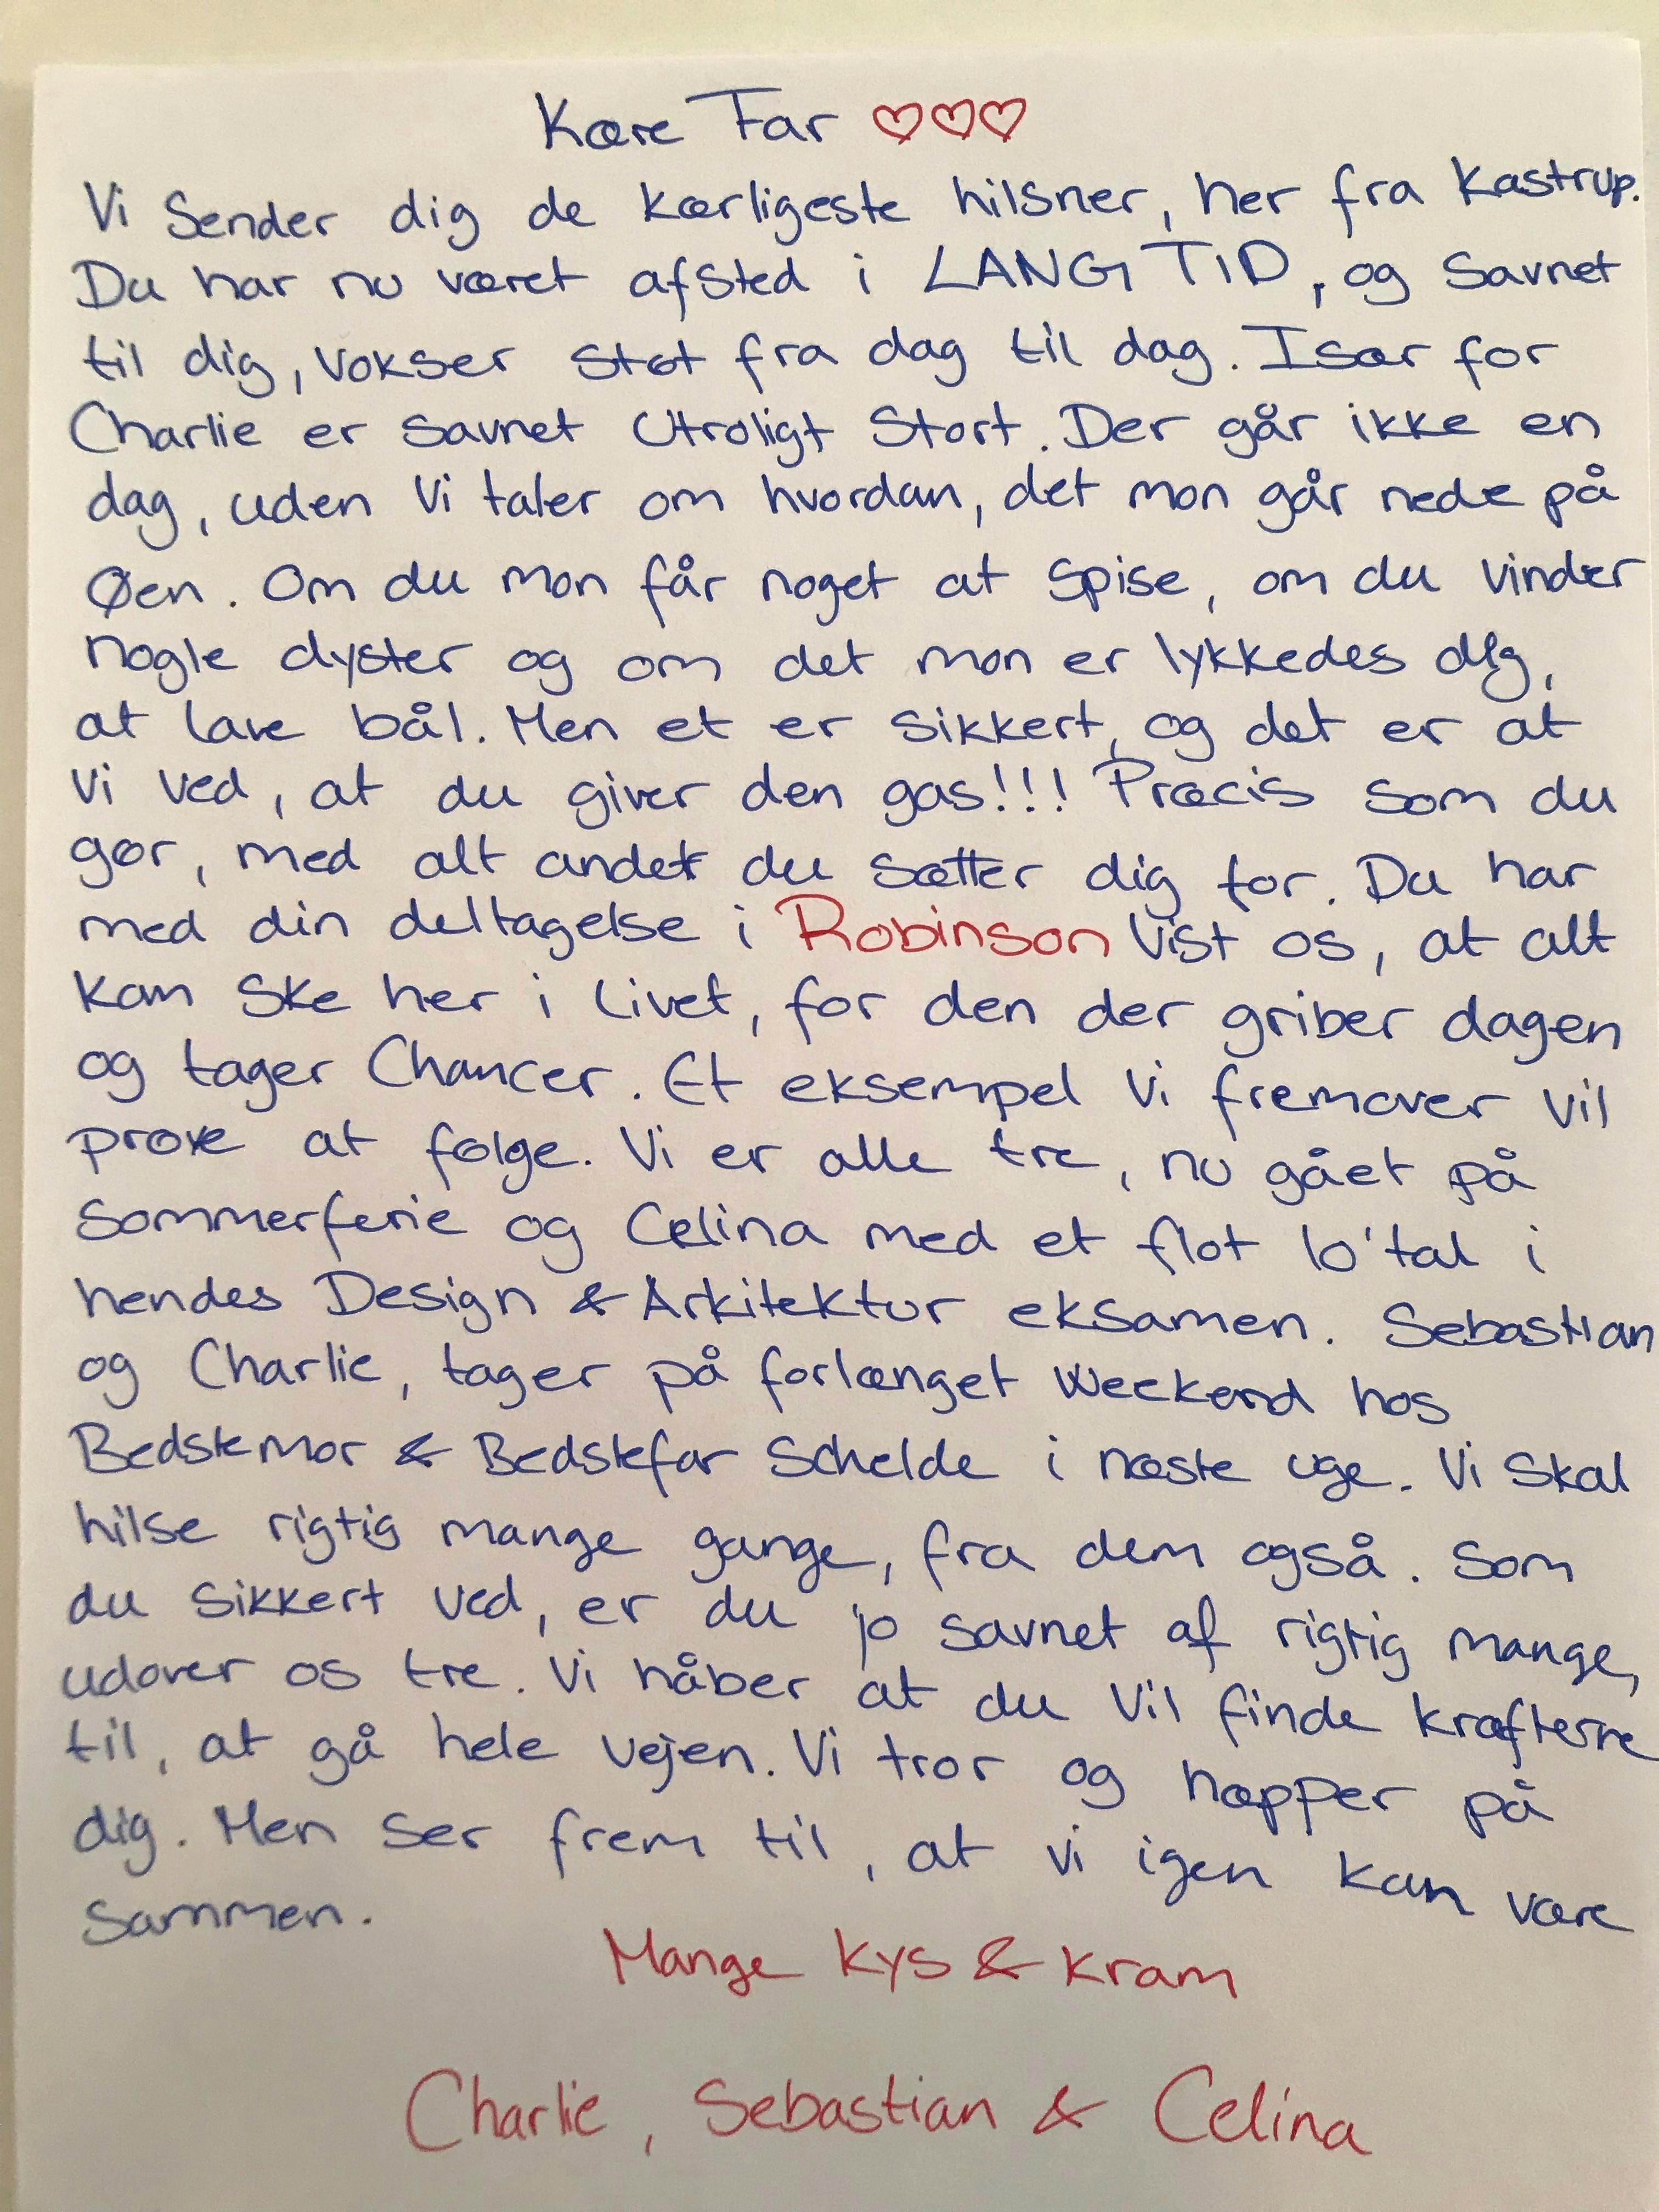 Kære Far ♡♡♡
Vi Sender dig de kærligeste hilsner, her fra Kastrup.
Du har nu været afsted i LANG TID, og Savnet
til dig, vokser støt fra dag til dag. Især for
Charlie er savnet Utroligt Stort. Der går ikke en
dag, uden vi taler om hvordan, det mon går nede på
Øen. Om du mon får noget at spise, om du vinder
nogle dyster og om det mon er lykkedes dig,
at lave bål. Men et er sikkert, og det er at
vi ved, at du giver den gas!!! Præcis som du
gør, med alt andet du sætter dig for. Du har
med din deltagelse i Robinson vist os, at alt
kan ske her i livet, for den der griber dagen
og tager Chancer. Et eksempel vi fremover vil
prøve at følge. Vi er alle tre, nu gået på
Sommerferie og Celina med et flot 10'tal i
hendes Design & Arkitektur eksamen. Sebastian
og Charlie, tager på forlænget weekend hos
Bedstemor & Bedstefar Schelde i næste uge. Vi skal
hilse rigtig mange gange, fra dem også. Som
du sikkert ved, er du jo savnet af rigtig mange,
udover os tre. Vi håber at du vil finde kræfterne
til, at gå hele vejen. Vi tror og hepper på
dig. Men ser frem til, at vi igen kan være
Sammen.
Mange Kys & Kram
Charlie, Sebastian & Celina